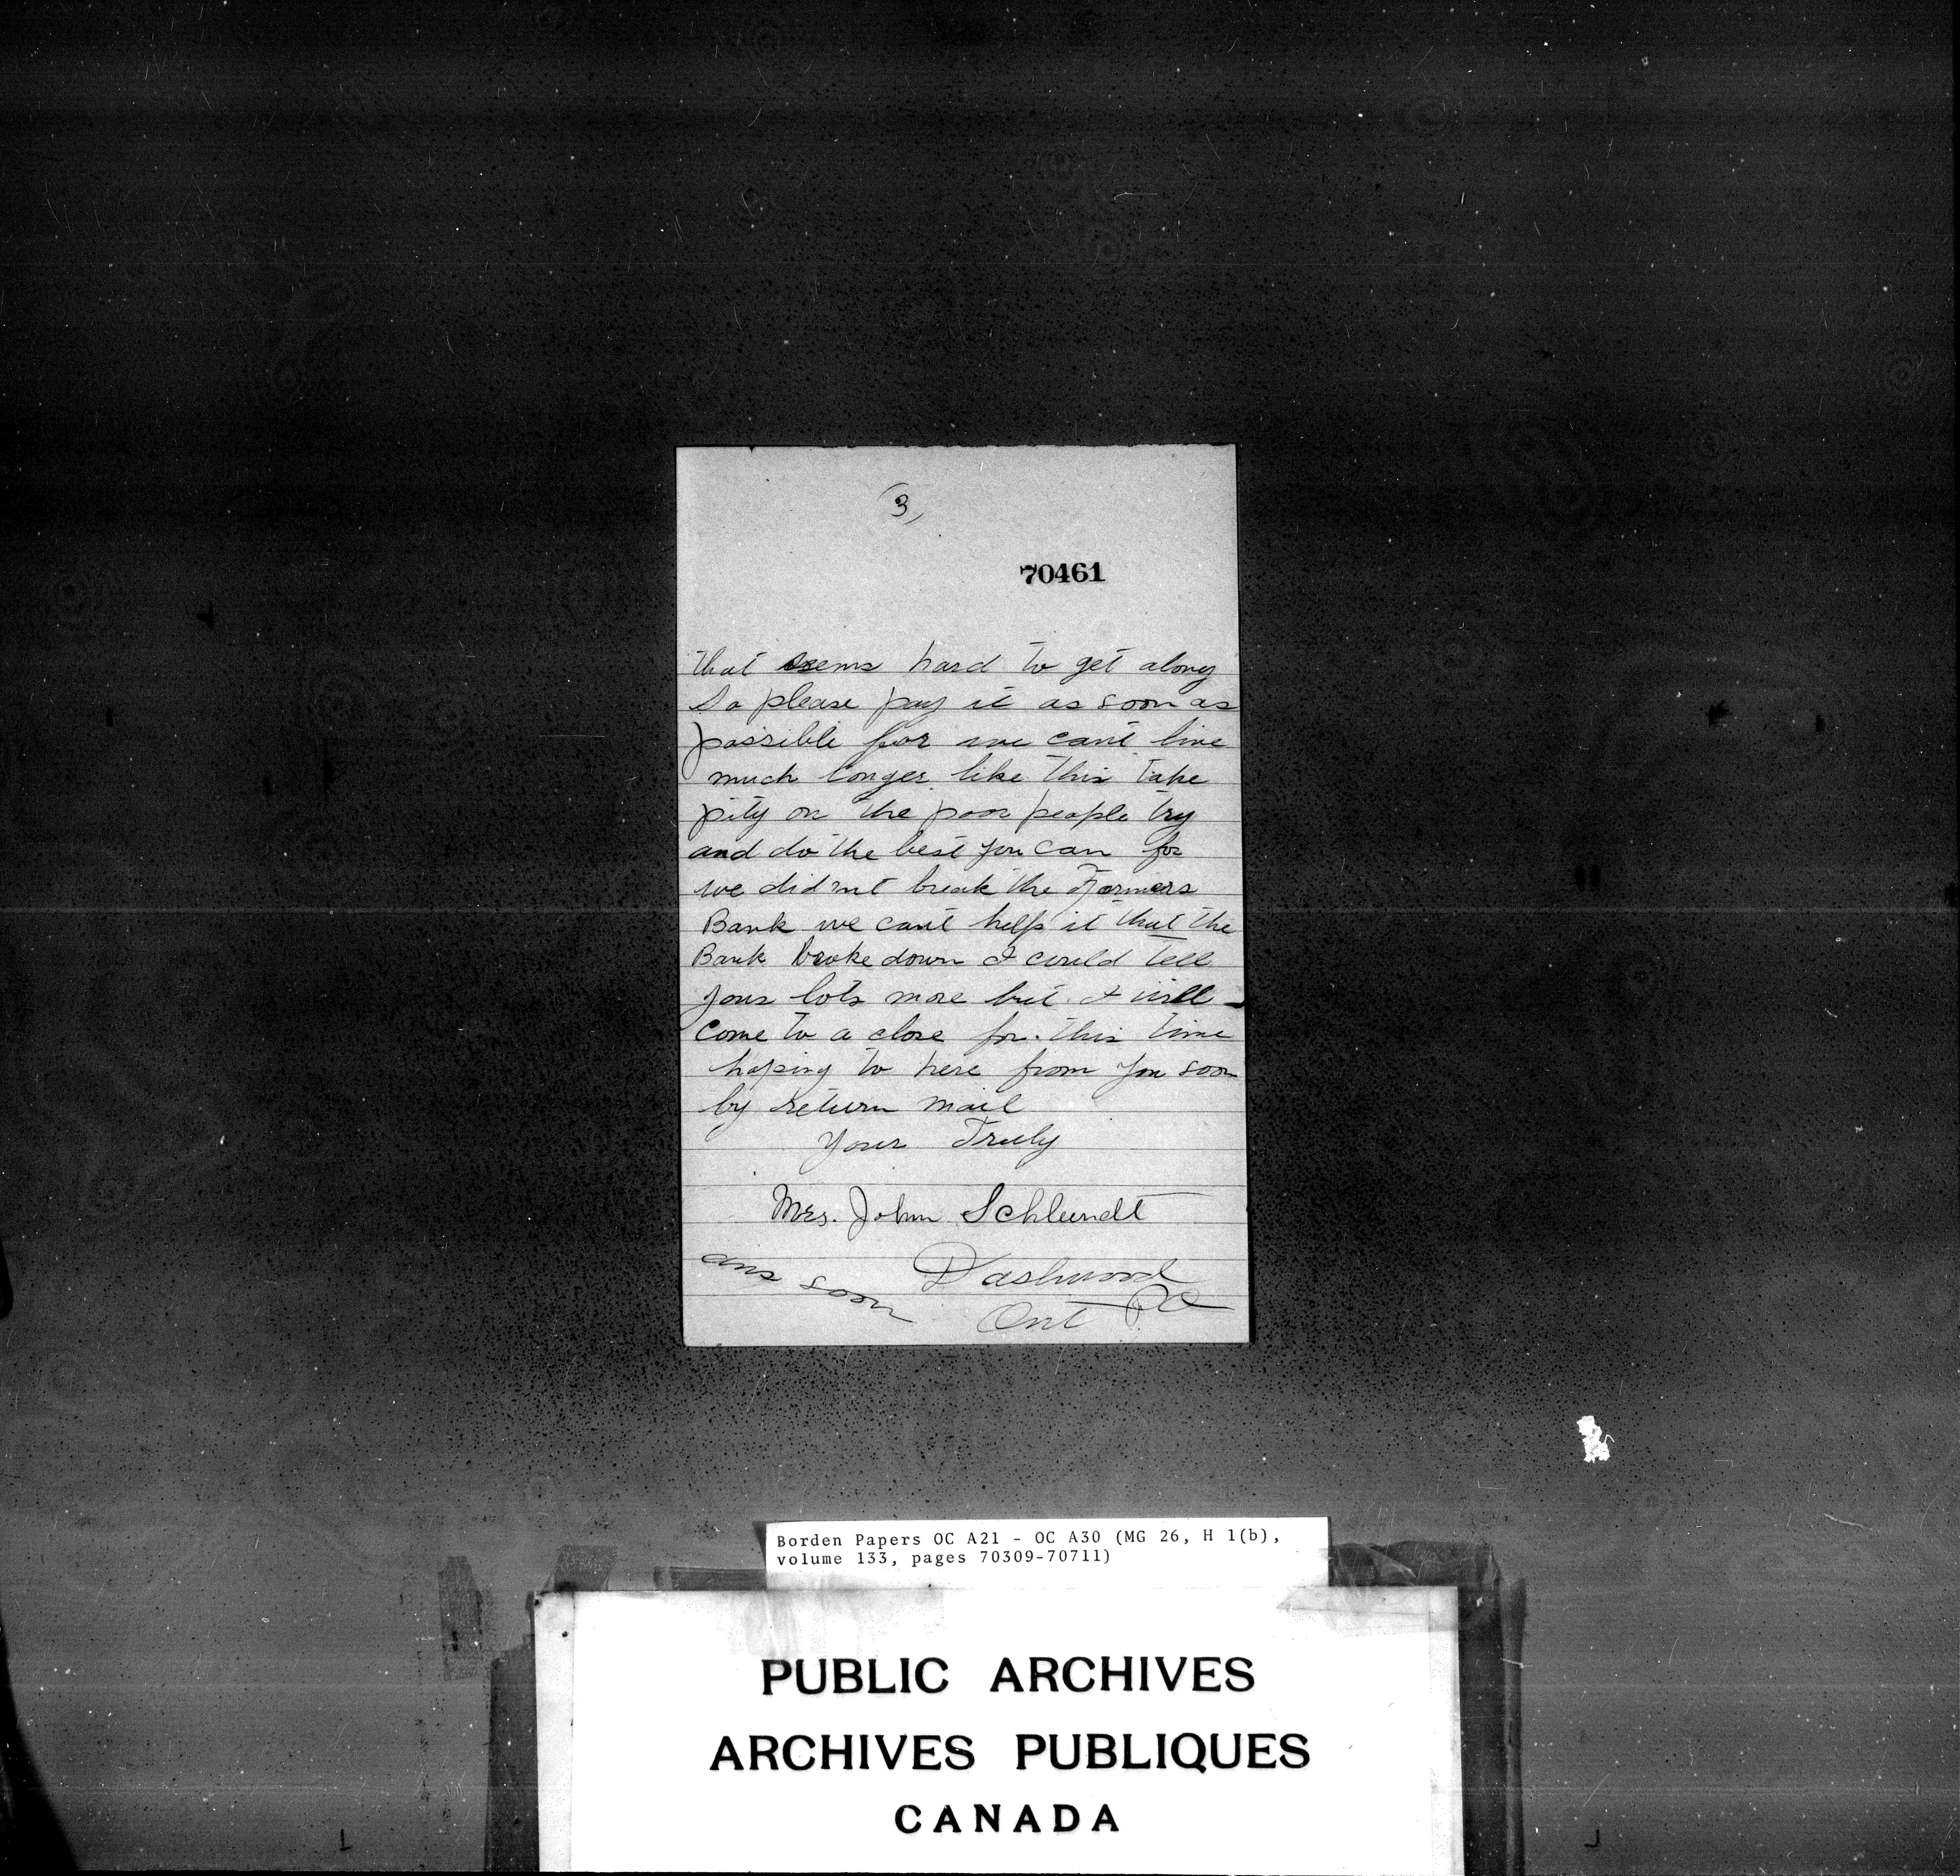 3)
70461
that seems hard to get along
So please pay it as soon as
possible for we cant live
much longer like this take
pity on the poor people try
and do the best you can for
we did nt break the Farmers
Bank we cant help it that the
Bank broke down I could tell
your lots more but I will
come to a close for this time
hoping to here from you soon
by return mail
Your Truly
Mrs. John Schlundt
ans soon
Dashwood
Ont PO
Borden Papers OC A21 - OC A30 (MG 26, H 1(b),
volume 133, pages 70309-70711)
PUBLIC ARCHIVES
ARCHIVES PUBLIQUES
CANADA